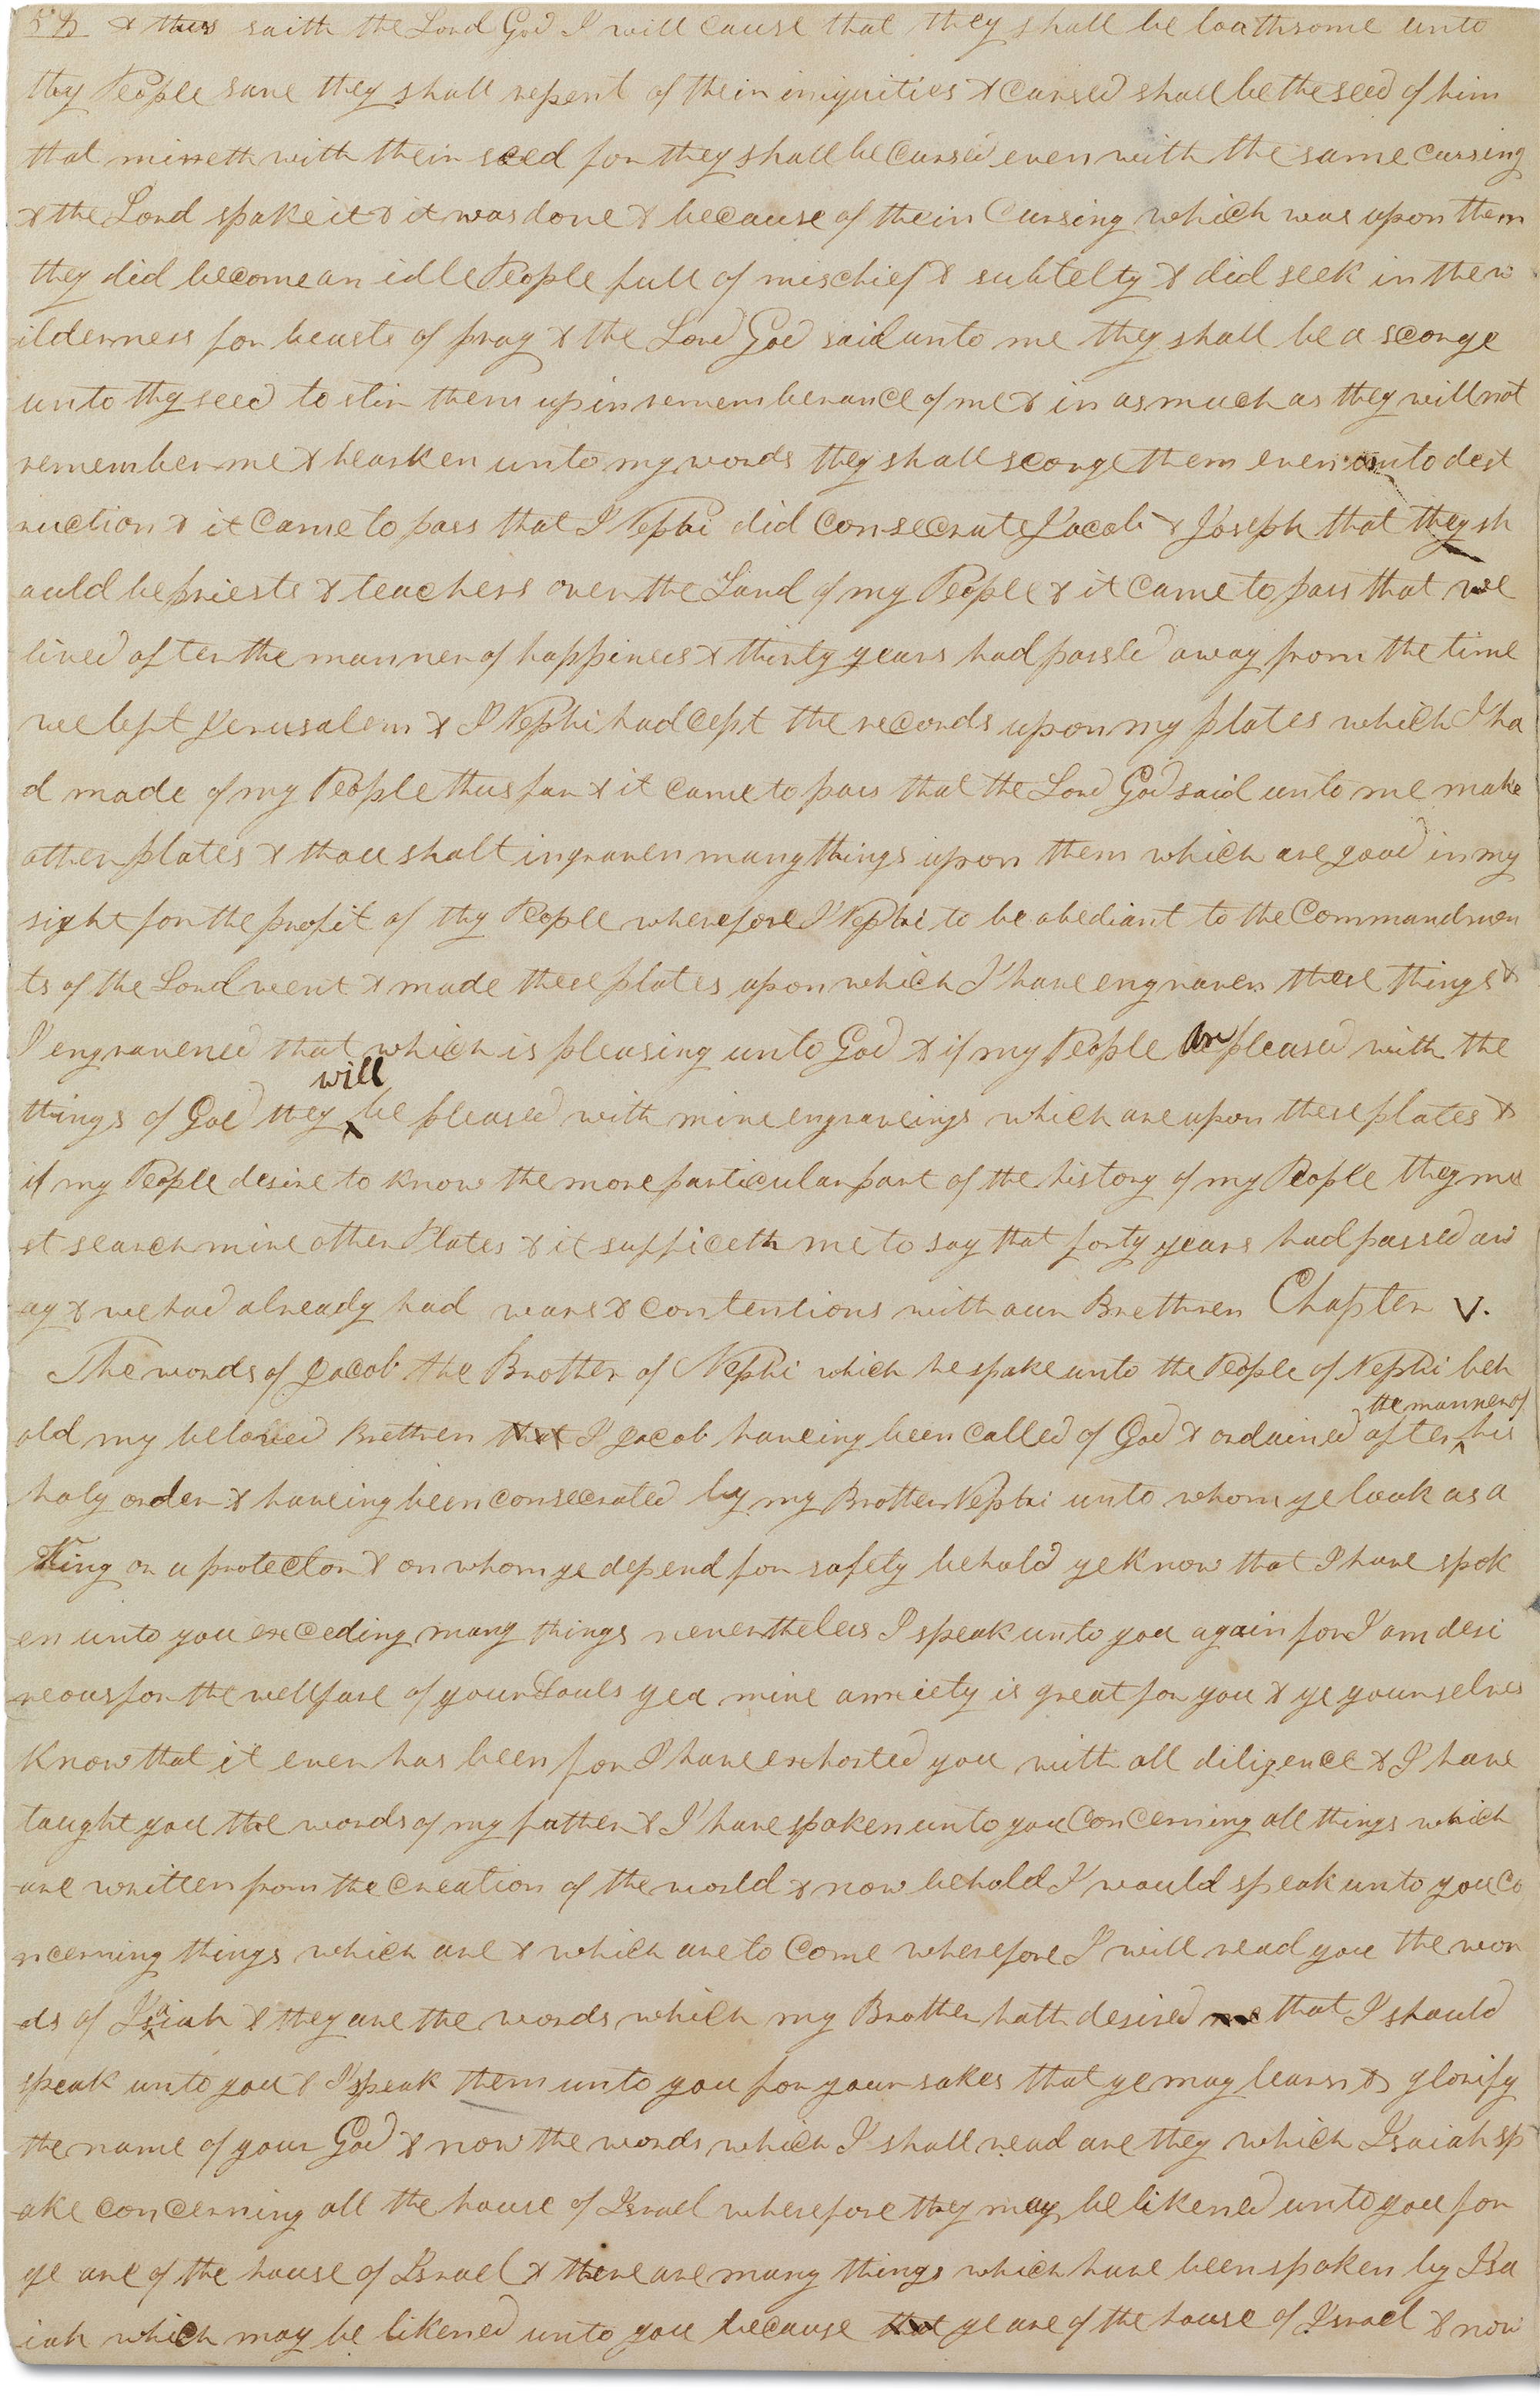 58 & thus saith the Lord God I will cause that they shall be loathsome unto
thy People save they shall repent of their iniquities & cursed shall be the seed of him
that mixeth with their seed for they shall be Cursed even with the same cursing
& the Lord spake it & it was done & because of their Cursing which was upon them
they did become an idle People full of mischief & subtelty & did seek in the w
ilderness for beasts of pray & the Lord God said unto me they shall be a scorge
unto thy seed to stir them up in rememberance of me & in as much as they will not
remember me & hearken unto my words they shall scorge them even unto dest
ruction & it Came to pass that I Nephi did consecrate Jacob & Joseph that they sh
ould be priests & teachers over the Land of my People & it Came to pass that we
lived after the manner of happiness & thirty years had passed away from the time
we left Jerusalem & I Nephi had cept the records upon my plates which I ha
d made of my People thus far & it came to pass that the Lord God said unto me make
other plates & thou shalt ingraven many things upon them which are good in my
sight for the profit of thy People wherefore I Nephi to be obediant to the Commandmen
ts of the Lord went & made these plates upon which I have engraven these things &
I engravened that which is pleasing unto God & if my People be pleased with the
things of God they will be pleased with mine engraveings which are upon these plates &
if my People desire to know the more particular part of the history of my People they mu
st search mine other Plates & it sufficeth me to say that forty years had passed aw
ay & we had already had wars & contentions with our Brethren Chapter V.
The words of Jacob the Brother of Nephi which he spake unto the People of Nephi beh
old my beloved Brethren that I Jacob haveing been called of God & ordained after the manner of his
holy order & haveing been consecrated by my Brother Nephi unto whom ye look as a
King or a protector & on whom ye depend for safety behold ye know that I have spok
en unto you exceding many things nevertheless I speak unto you again for I am desi
reous for the wellfare of your Souls yea mine anxiety is great for you & ye yourselves
know that it ever has been for I have exhorted you with all diligence & I have
taught you the words of my father & I have spoken unto you Concerning all things which
are written from the creation of the world & now behold I would speak unto you co
ncerning things which are & which are to Come wherefore I will read you the wor
ds of Isaiah & they are the words which my Brother hath desired me that I should
speak unto you & I speak them unto you for your sakes that ye may learn & glorify
the name of your God & now the words which I shall read are they which Isaiah sp
ake concerning all the house of Israel wherefore they may be likened unto you for
ye are of the house of Israel & there are many things which have been spoken by Isa
iah which may be likened unto you because that ye are of the house of Israel & now